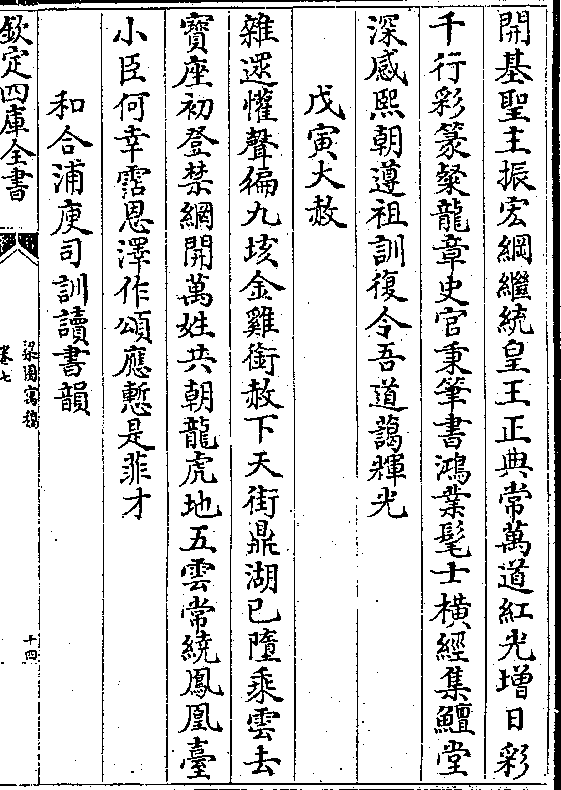 開基聖主振宏綱繼統皇王正典常萬道紅光增日彩
千行彩篆粲龍章史官秉筆書鴻業髦士橫經集鱣堂
深感熙朝遵祖訓復令吾道藹輝光
戊寅大赦
雜遝懽聲徧九垓金雞銜赦下天街鼎湖已墮乘雲去
寳座初登禁網開萬姓共朝龍虎地五雲常繞鳳凰臺
小臣何幸霑恩澤作頌應慙是菲才
和合浦庾司訓讀書韻
欽定四庫全書
梁園寓稿
卷七
十四